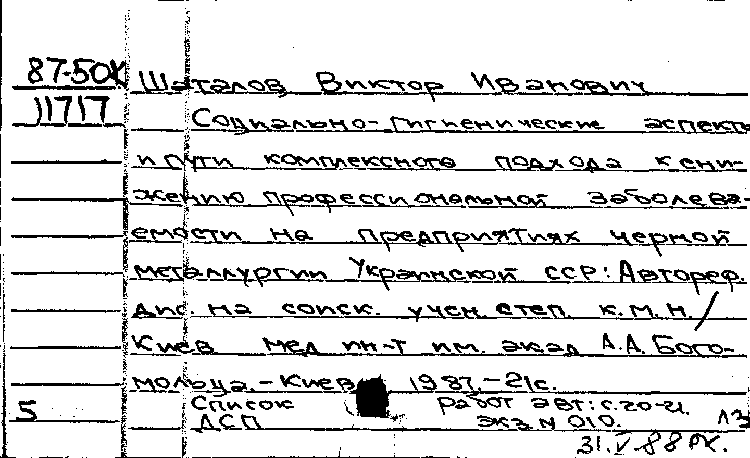 87-50К Шаталов Виктор Иванович
11717 Социально-гигиенические аспекты
и пути комплексного подхода к сни-
жению профессиональной заболева-
емости на предприятиях черной
металлургии Украинской ССР: Автореф.
дис. на соиск. учен. степ. к.м.н. /
Киев мед ин-т им. акад А.А. Бого-
мольца. - Киев 1987. - 21с.
Список работ авт: с. 20-21.
5 ДСП экз N 010.
31.V.88